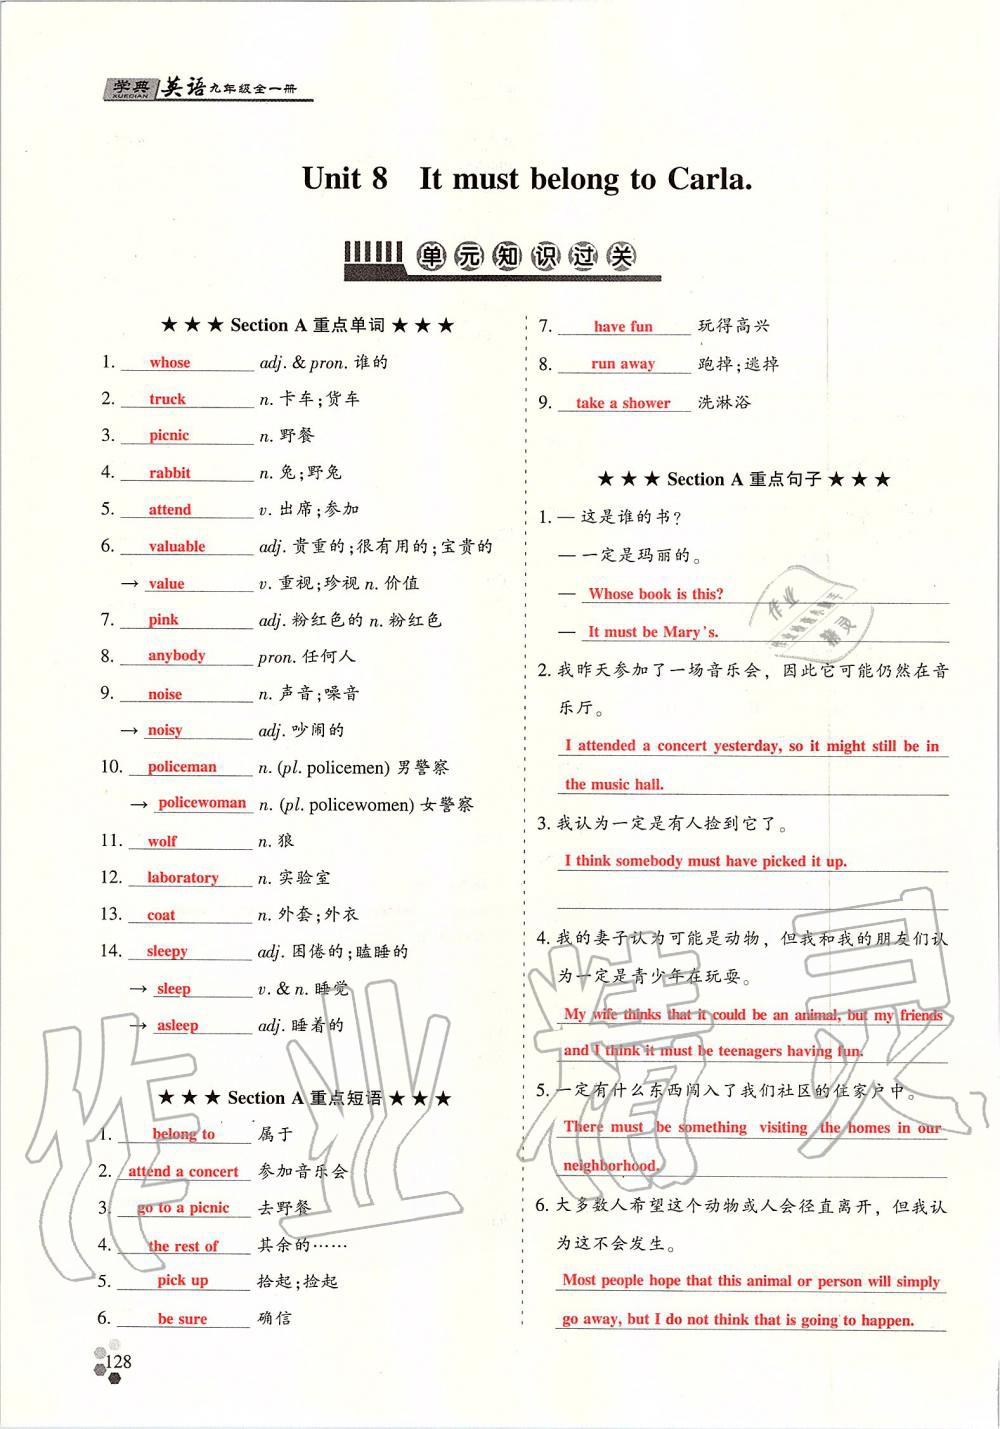 学典 XUEDIAN 英语九年级全一册
Unit 8 It must belong to Carla.
单元知识过关
★ ★ ★ Section A 重点单词 ★ ★ ★
1. whose adj. & pron. 谁的
2. truck n. 卡车;货车
3. picnic n. 野餐
4. rabbit n. 兔;野兔
5. attend v. 出席;参加
6. valuable adj. 贵重的;很有用的;宝贵的
→ value v. 重视;珍视 n. 价值
7. pink adj. 粉红色的 n. 粉红色
8. anybody pron. 任何人
9. noise n. 声音;噪音
→ noisy adj. 吵闹的
10. policeman n. (pl. policemen) 男警察
→ policewoman n. (pl. policewomen) 女警察
11. wolf n. 狼
12. laboratory n. 实验室
13. coat n. 外套;外衣
14. sleepy adj. 困倦的;瞌睡的
→ sleep v. & n. 睡觉
→ asleep adj. 睡着的
★ ★ ★ Section A 重点短语 ★ ★ ★
1. belong to 属于
2. attend a concert 参加音乐会
3. go to a picnic 去野餐
4. the rest of 其余的……
5. pick up 拾起;捡起
6. be sure 确信
7. have fun 玩得高兴
8. run away 跑掉;逃掉
9. take a shower 洗淋浴
★ ★ ★ Section A 重点句子 ★ ★ ★
1. — 这是谁的书?
— 一定是玛丽的。
— Whose book is this?
— It must be Mary's.
2. 我昨天参加了一场音乐会，因此它可能仍然在音
乐厅。
I attended a concert yesterday, so it might still be in
the music hall.
3. 我认为一定是有人捡到它了。
I think somebody must have picked it up.
4. 我的妻子认为可能是动物，但我和我的朋友们认
为一定是青少年在玩耍。
My wife thinks that it could be an animal, but my friends
and I think it must be teenagers having fun.
5. 一定有什么东西闯入了我们社区的住家户中。
There must be something visiting the homes in our
neighborhood.
6. 大多数人希望这个动物或人会径直离开，但我认
为这不会发生。
Most people hope that this animal or person will simply
go away, but I do not think that is going to happen.
128
作业精灵